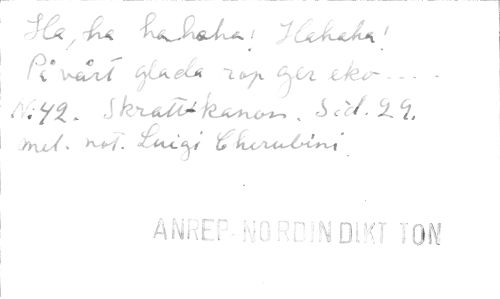 Ha, ha ha haha! Hahaha!
På vårt glada rop ger eko.....
N:42. Skratt-kanon. Sid. 29.
mel. not. Luigi Cherubini.
ANREP-NORDIN DIKT TON